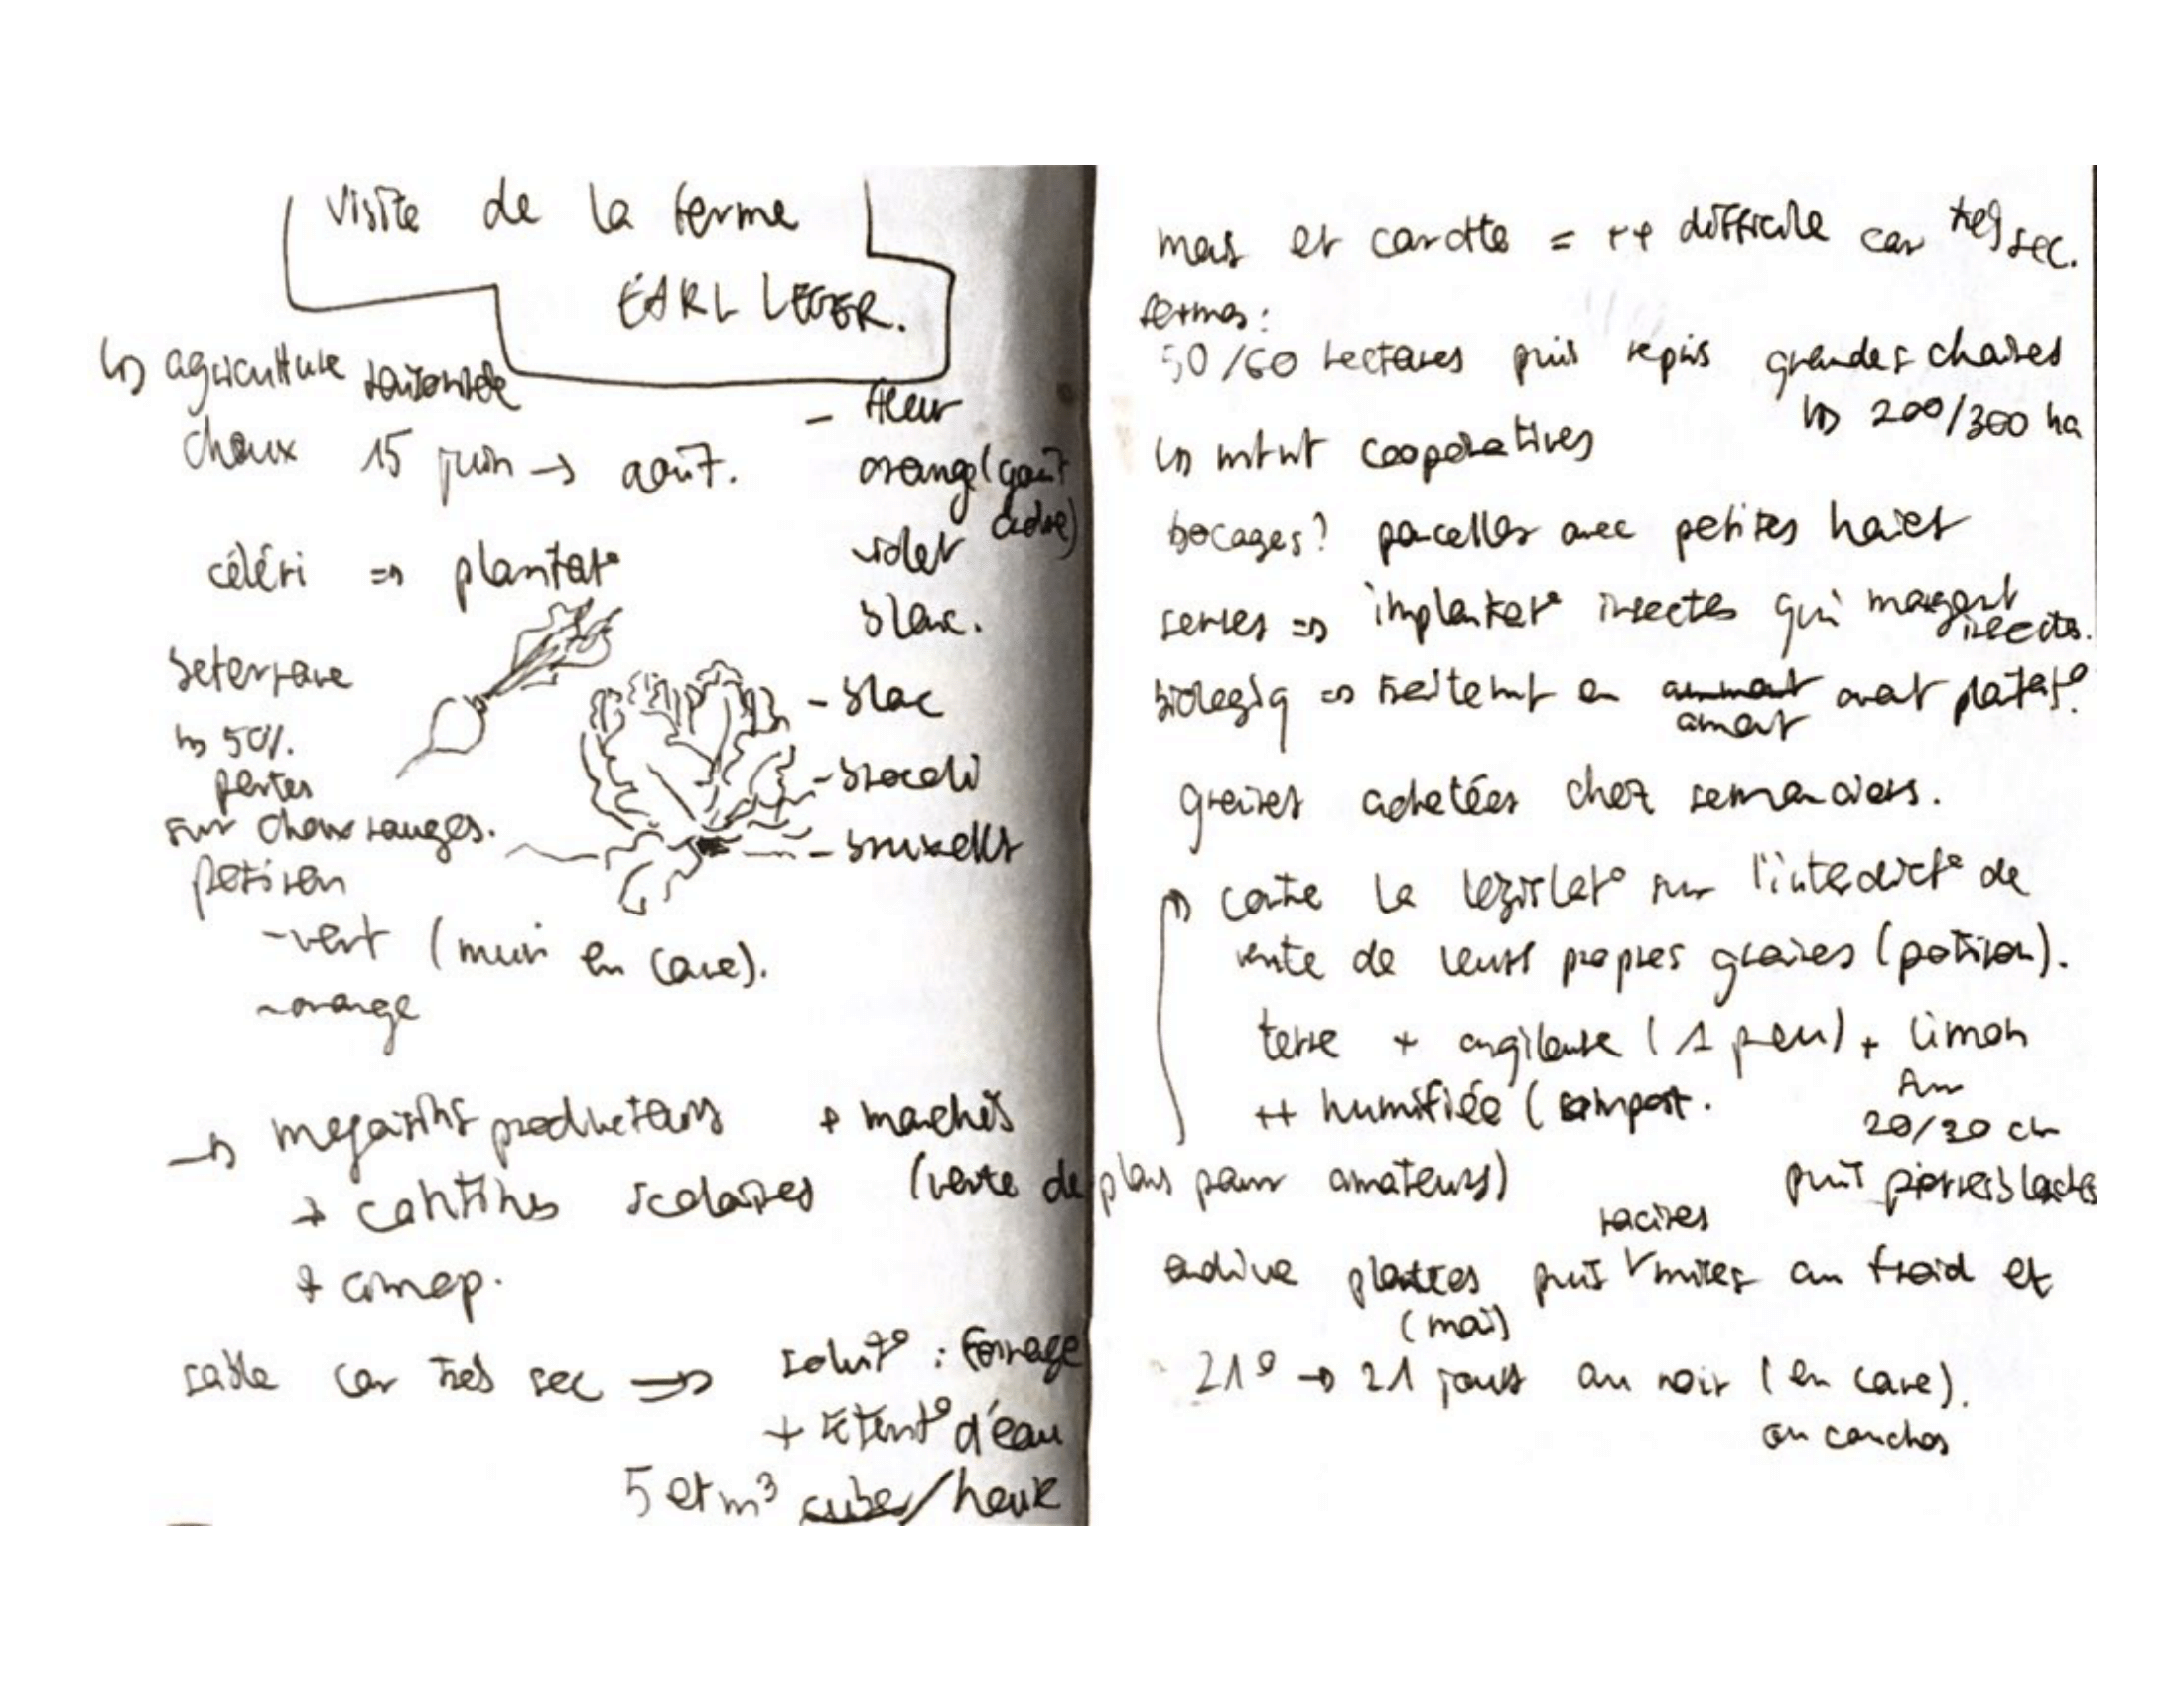 Visite de la ferme
EARL LEGER.
↳ agriculture raisonnée
choux 15 juin → août.
- fleur
orange (goût
cèdre)
violet
blanc.
céléri => plantat°
beterrave
↳ 50%
pertes
sur choux rouges.
potiron
- vert (mûri en cave).
- orange
- blac
- brocoli
- bruxelles
→ magasins producteurs + marchés
+ cantines scolaires (vente de plans pour amateurs)
+ comep.
sable car très sec => solut° : forrage
+ rétent° d'eau
5 et m³ cubes/heure
mais et carotte = ++ difficile car très sec.
fermes :
50/60 hectares puis repris grandes
↳ 200/300 ha
↳ mtnt coopératives
bocages ? parcelles avec petites haies
serres => implantat° insectes qui mangent insectes.
biologiq => traitemnt en amont avat platat°.
graines achetées chez semanciers.
conte la législat° sur l'interdict° de
vente de leurs propres graines (potiron).
terre + argileuse (1 peu) + limon
++ humifiée (compost.
sur
20/30 cm
puis pierres
endive plantées puis racines mises au froid et
(mai)
21° → 21 jours au noir (en cave).
ou couches